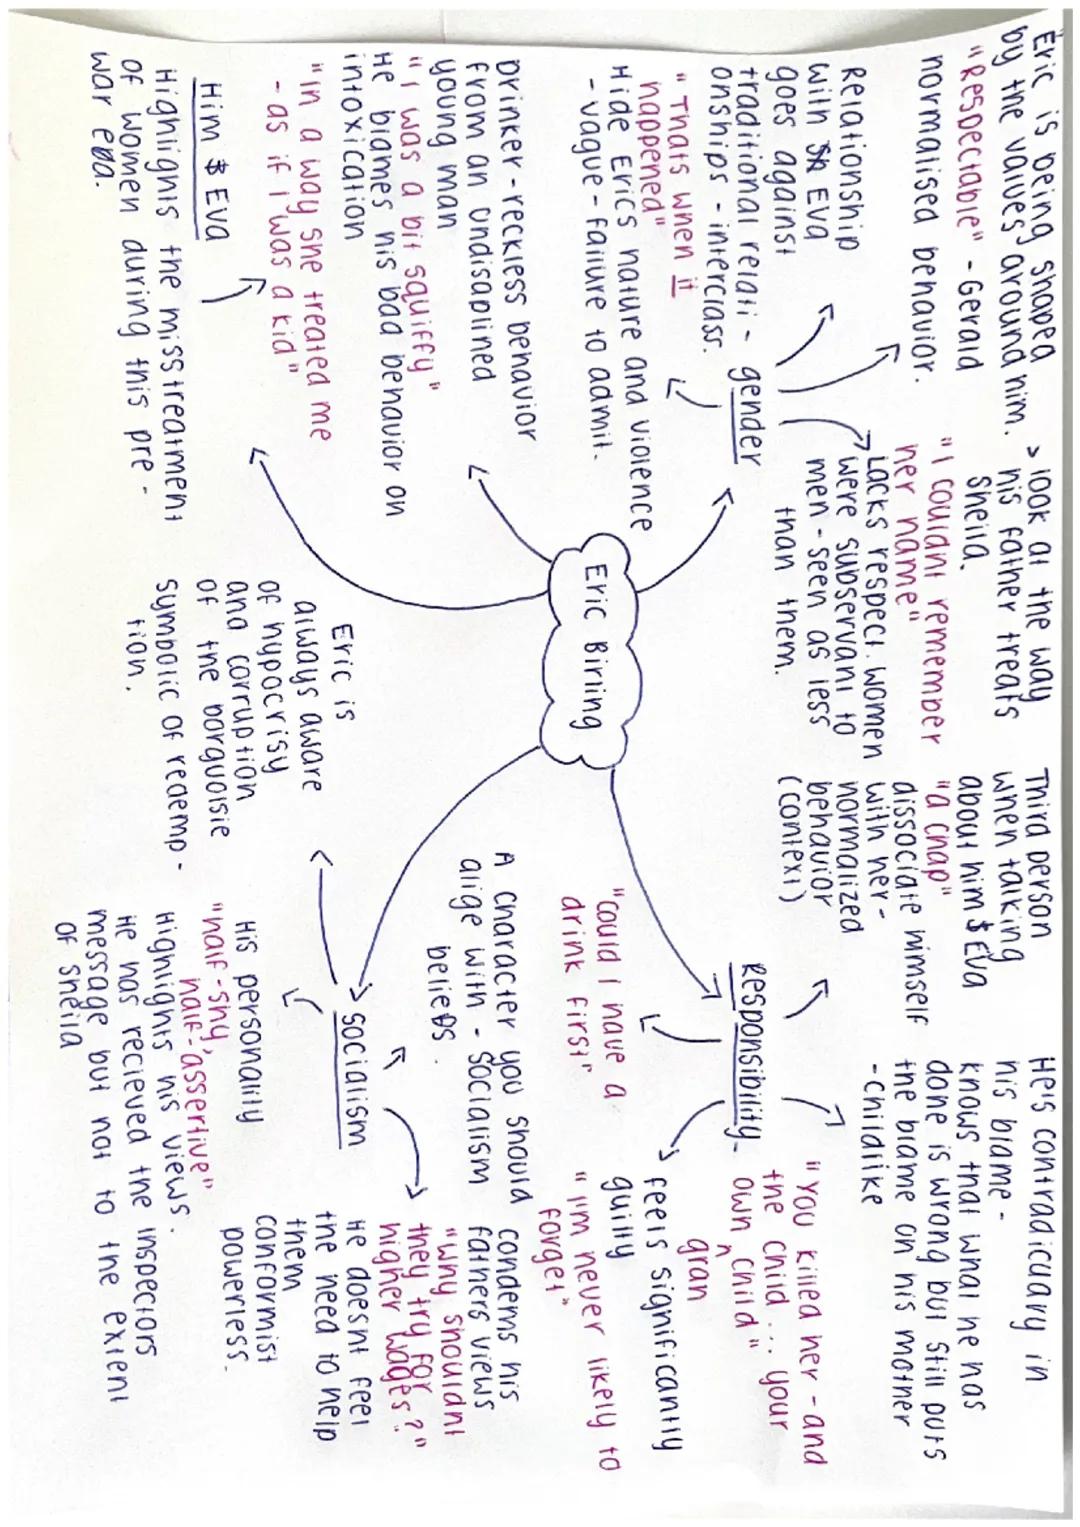 Eric is being shaped
by the values around him.
"Respectable" - Gerald
normalised behavior.
> look at the way
his father treats
Sheila.
"I couldnt remember
her name"
Lacks respect. women
were subservant to
men - seen as less
than them.
Relationship
with Eva
goes against
traditional relati -
onships - interclass.
gender
"Thats when it
happened"
Hide Erics nature and violence
- vague - failure to admit.
Drinker - reckless behavior
from an undisaplined
young man
"I was a bit squiffy"
He blames his bad behavior on
intoxication
"In a way she treated me
- as if I was a kid"
Him & Eva
Highlights the misstreatment
of women during this pre -
war era.
Eric Birling
Third person
when talking
about him & Eva
"a chap"
dissociate himself
with her -
normalized
behavior
(context)
He's contradicuary in
his blame -
knows that what he has
done is wrong but still puts
the blame on his mother
- childlike
Responsibility -
"You killed her - and
the child ... your
own child"
gran
"Could I have a
drink first"
feels significantly
guilty
"I'm never likely to
forget"
A character you should
alige with - Socialism
beliefs.
Socialism
condems his
fathers views
"why shouldnt
they try for
higher wages?"
He doesnt feel
the need to help
them
conformist
powerless.
Eric is
always aware
of hypocrisy
and corruption
of the borguoisie
Symbolic of redemp -
tion.
His personality
"half - shy,
half - assertive"
Highlights his views.
He has recieved the inspectors
message but not to the extent
of Sheila